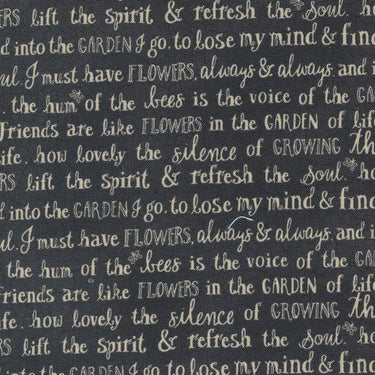 ERS lift the spirit & refresh the soul. h
d into the GARDEN I go, to lose my mind & find
ul. I must have FLOWERS, always & always. and i
. the hum of the bees is the voice of the GA
friends are like FLOWERS in the GARDEN of life
ife. how lovely the silence of GROWING th
RS lift the spirit & refresh the soul. h
d into the GARDEN I go, to lose my mind & find
ul. I must have FLOWERS, always & always. and i
. the hum of the bees is the voice of the GA
friends are like FLOWERS in the GARDEN of life
fe. how lovely the silence of GROWING th
RS lift the spirit & refresh the soul. h
into the GARDEN I go, to lose my mind & find